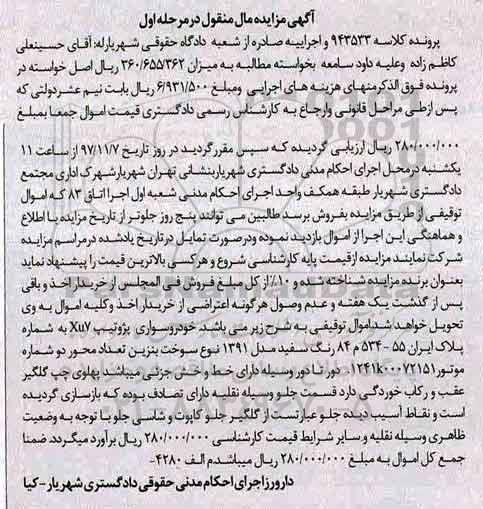 آگهی مزایده مال منقول در مرحله اول
پرونده کلاسه ۹۴۳۵۳۳ و اجراییه صادره از شعبه دادگاه حقوقی شهریار له: آقای حسینعلی
کاظم زاده وعلیه داود سامعه بخواسته مطالبه به میزان ۳۶۰/۶۵۵/۳۶۲ ریال اصل خواسته در
پرونده فوق الذکر منهای هزینه های اجرایی ومبلغ ۶/۹۳۱/۵۰۰ ریال بابت نیم عشر دولتی که
پس از طی مراحل قانونی وارجاع به کارشناس رسمی دادگستری قیمت اموال جمعا بمبلغ
۲۸۰/۰۰۰/۰۰۰ ریال ارزیابی گردیده که سپس مقرر گردید در روز تاریخ ۹۷/۱۱/۷ از ساعت ۱۱
یکشنبه در محل اجرای احکام مدنی دادگستری شهریار بنشانی تهران شهریار شهرک اداری مجتمع
دادگستری شهریار طبقه همکف واحد اجرای احکام مدنی شعبه اول اجرا اتاق ۸۳ که اموال
توقیفی از طریق مزایده بفروش برسد طالبین می توانند پنج روز جلوتر از تاریخ مزایده با اطلاع
و هماهنگی این اجرا از اموال بازدید نموده ودر صورت تمایل در تاریخ یادشده در مراسم مزایده
شرکت نمایند مزایده از قیمت پایه کارشناسی شروع و هر کسی بالاترین قیمت را پیشنهاد نماید
بعنوان برنده مزایده شناخته شده و ۱۰٪ از کل مبلغ فروش فی المجلس از خریدار اخذ و باقی
پس از گذشت یک هفته و عدم وصول هرگونه اعتراضی از خریدار اخذ وکلیه اموال به وی
تحویل خواهد شد. اموال توقیفی به شرح زیر می باشد. خودرو سواری پژو تیپ Xu7 به شماره
پلاک ایران ۵۵ - ۵۳۴ م ۸۴ رنگ سفید مدل ۱۳۹۱ نوع سوخت بنزین تعداد محور دو شماره
موتور ۱۲۴۱۸۰۰۰۷۲۱۵۱ دور تا دور وسیله دارای خط و خش جزئی میباشد پهلوی چپ گلگیر
عقب و رکاب خوردگی دارد قسمت جلو وسیله نقلیه دارای تصادف بوده که بازسازی گردیده
است و نقاط آسیب دیده جلو عبارتست از گلگیر جلو کاپوت و شاسی جلو با توجه به وضعیت
ظاهری وسیله نقلیه و سایر شرایط قیمت کارشناسی ۲۸۰/۰۰۰/۰۰۰ ریال برآورد میگردد. ضمنا
جمع کل اموال به مبلغ ۲۸۰/۰۰۰/۰۰۰ ریال میباشد م الف ۴۲۸۰-
دارورز اجرای احکام مدنی حقوقی دادگستری شهریار - کیا